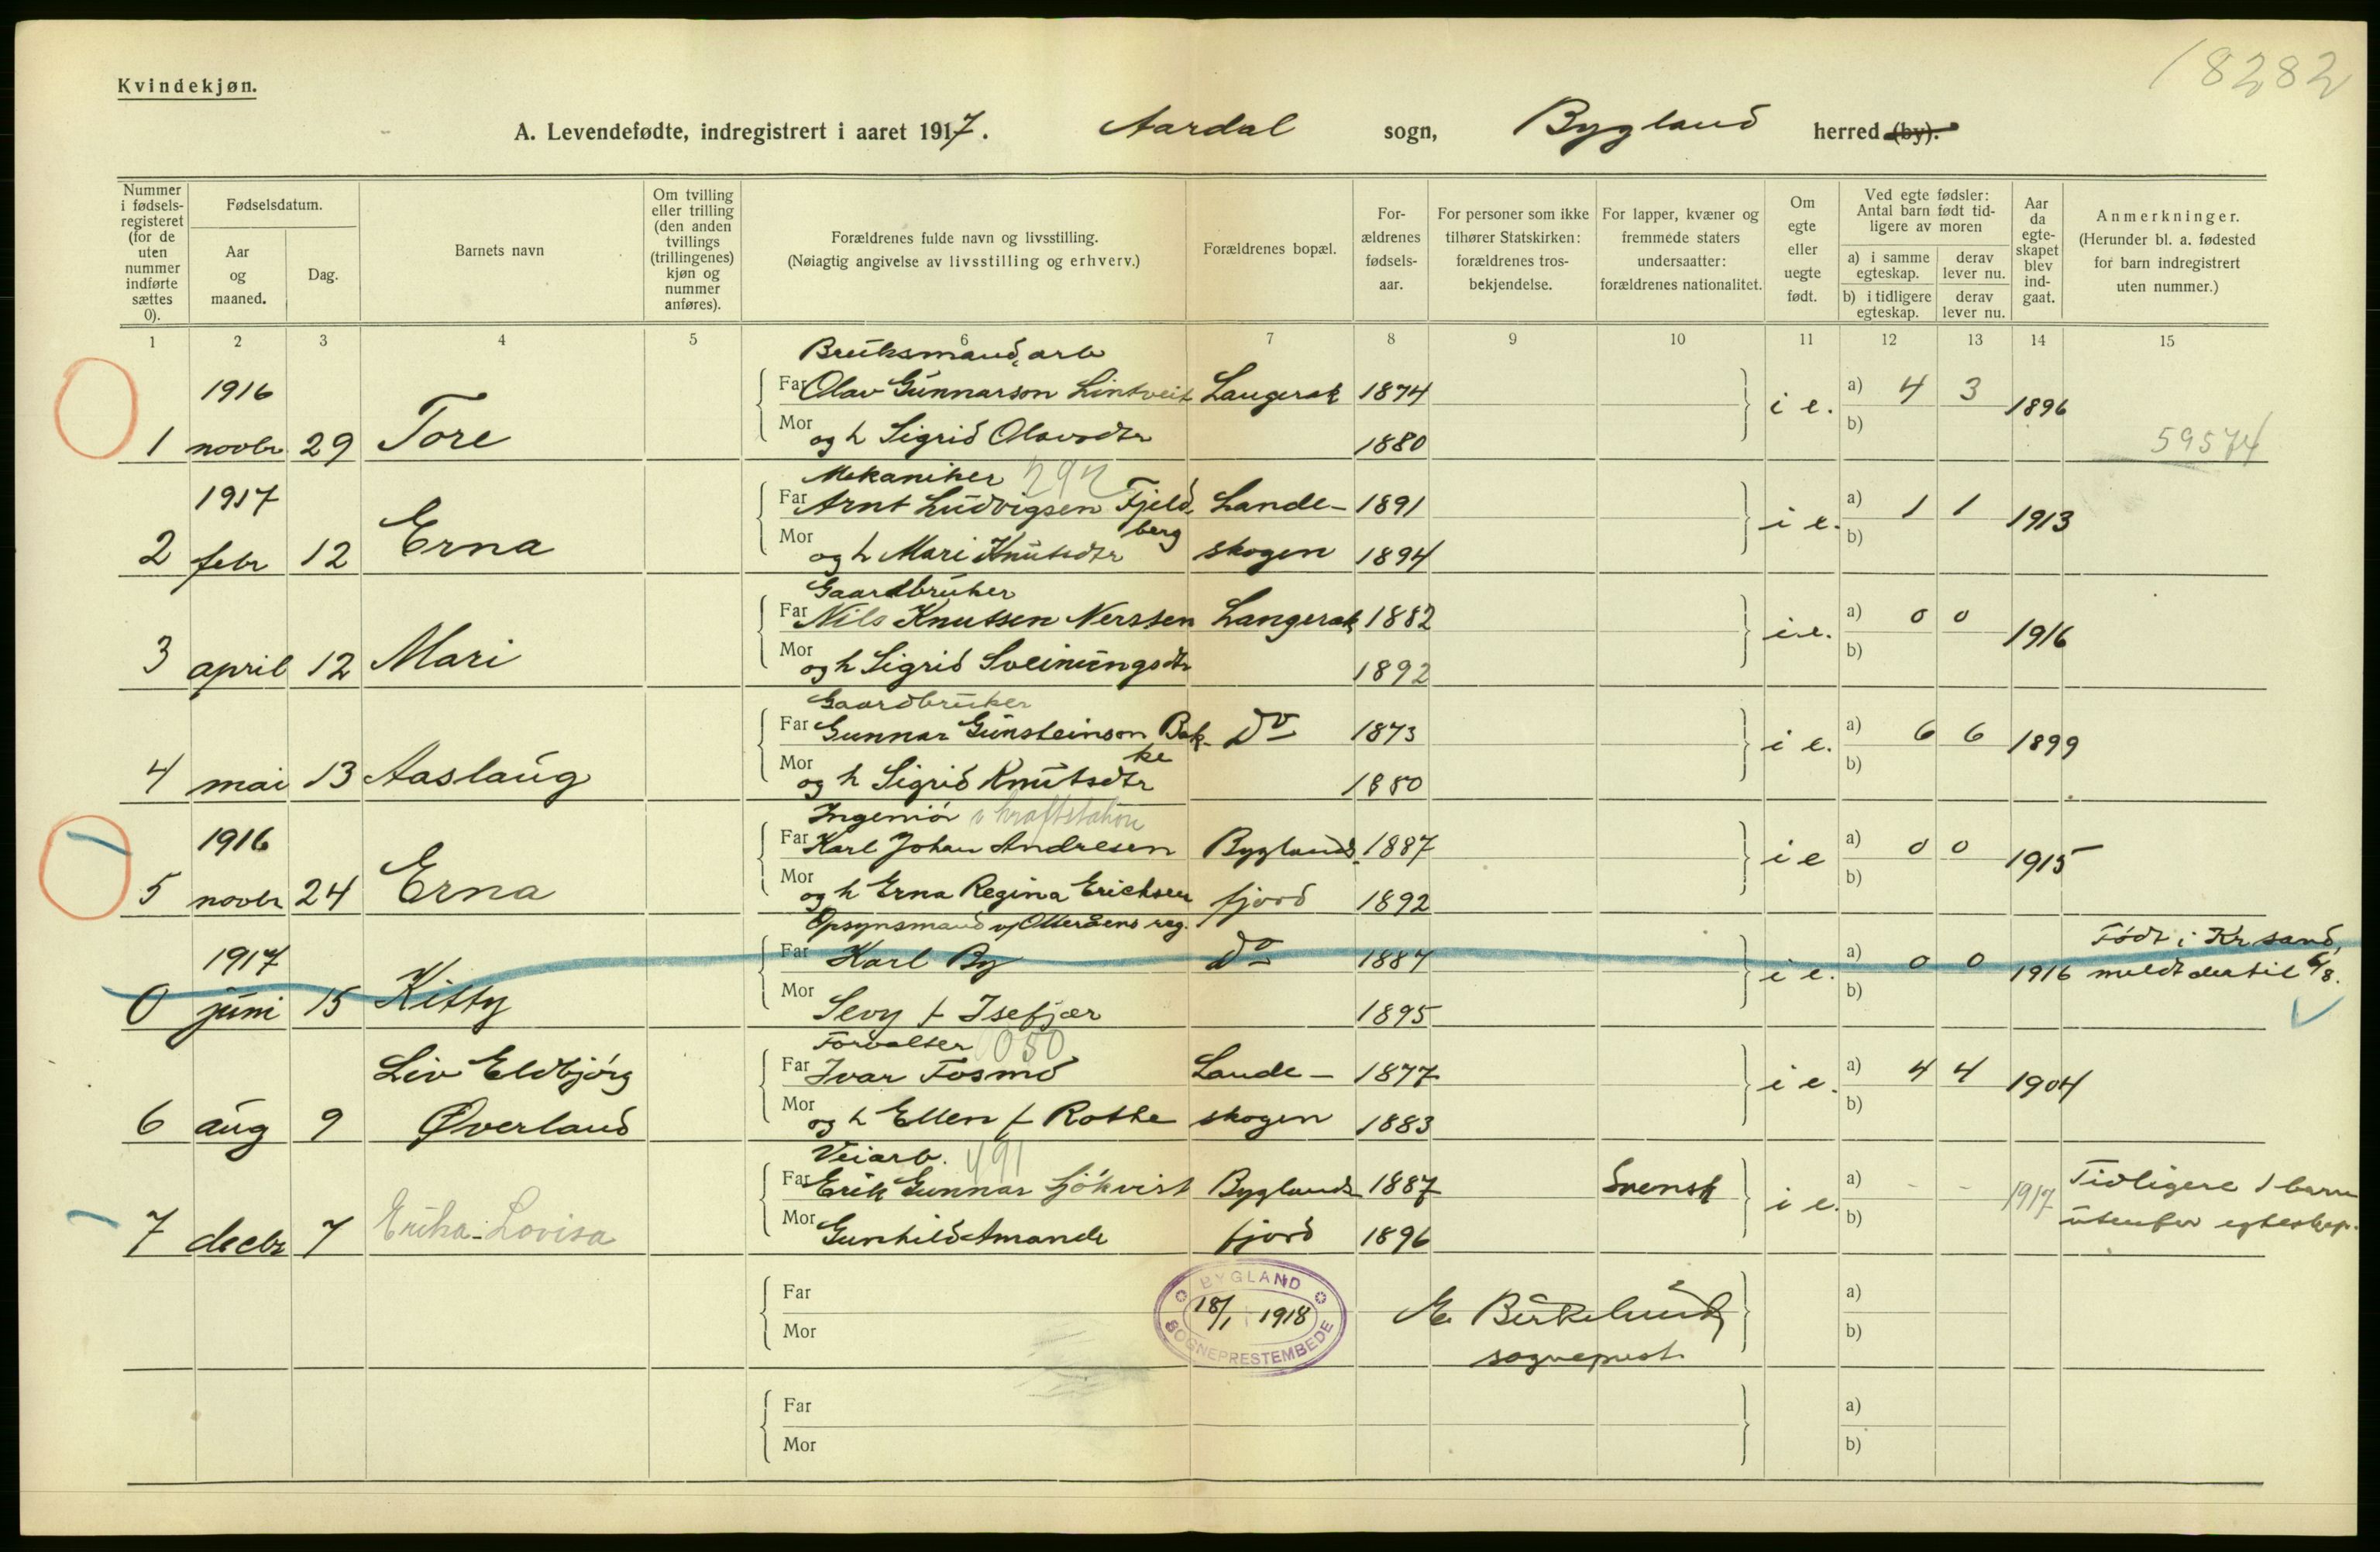 Kvindekjøn.
18282
A. Levendefødte, indregistrert i aaret 1917. Aardal sogn, Bygland herred (by).
Nummer i fødsels-registeret (for de uten nummer indførte sættes 0).
Fødselsdatum.
Aar og maaned.
Dag.
Barnets navn
Om tvilling eller trilling (den anden tvillings (trillingenes) kjøn og nummer anføres).
Forældrenes fulde navn og livsstilling.
(Nøiagtig angivelse av livsstilling og erhverv.)
Forældrenes bopæl.
For-ældrenes fødsels-aar.
For personer som ikke tilhører Statskirken: forældrenes tros-bekjendelse.
For lapper, kvæner og fremmede staters undersaatter: forældrenes nationalitet.
Om egte eller uegte født.
Ved egte fødsler: Antal barn født tid-ligere av moren
a) i samme egteskap.
derav lever nu.
b) i tidligere egteskap.
derav lever nu.
Aar da egte-skapet blev ind-gaat.
Anmerkninger.
(Herunder bl. a. fødested for barn indregistrert uten nummer.)
1 2 3 4 5 6 7 8 9 10 11 12 13 14 15
Bruksmand, arb
1916
Far Olav Gunnarson Lintveit Langerak 1874 i e. a) 4 3 1896
1 novbr 29 Tore
Mor og h Sigrid Olavsdtr 1880 b)
59574
Mekaniker 292
1917
Far Arnt Ludvigsen Fjeld- Lande- 1891 i e. a) 1 1 1913
berg
2 febr 12 Erna
Mor og h Mari Knutsdtr skogen 1894 b)
Gaardbruker
Far Nils Knutsen Nersten Langerak 1882 i e. a) 0 0 1916
3 april 12 Mari
Mor og h Sigrid Sveinungsdtr 1892 b)
Gaardbruker
Far Gunnar Gunsteinson Bak- Do 1873 i e. a) 6 6 1899
ke
4 mai 13 Aaslaug
Mor og h Sigrid Knutsdtr 1880 b)
Ingeniør v kraftstation
1916
Far Karl Johan Andresen Byglands- 1887 i e a) 0 0 1915
5 novbr 24 Erna
Mor og h Erna Regina Erichsen fjord 1892 b)
Opsynsmand v/ Otteråens reg.
1917
Far Karl By Do 1887 i e. a) 0 0 1916
Født i Kr sand,
meldt dertil 6/8.
0 juni 15 Kitty
Mor Sevy f Isefjær 1895 b)
Forvalter 050
Liv Eldbjørg
Far Ivar Fosmo Lande- 1877 i e. a) 4 4 1904
6 aug 9 Øverland
Mor og h Ellen f Rothe skogen 1883 b)
Veiarb. 491
Far Erik Gunnar Sjökvist Byglands- 1887 Svensk i e. a) - - 1917
Tidligere 1 barn
utenfor egteskap.
7 decbr 7 Erika-Lovisa
Mor Gunhild Amanda fjord 1896 b)
BYGLAND
18/1 1918
SOGNEPRESTEMBEDE
Far a)
Mor b)
Birkelund
sogneprest
Far a)
Mor b)